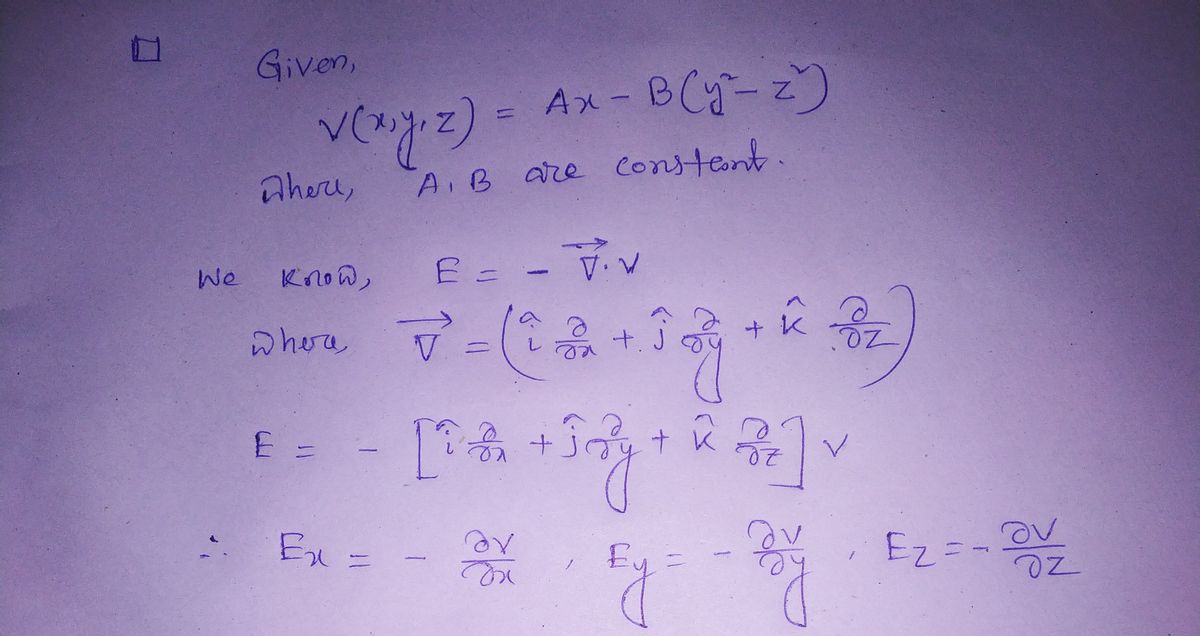 Given,
V(x,y,z) = Ax - B(y² - z²)
where, A, B are constant.
We know, E = - ∇⃗.V
where ∇⃗ = (î ∂/∂x + ĵ ∂/∂y + k̂ ∂/∂z)
E = - [î ∂/∂x + ĵ ∂/∂y + k̂ ∂/∂z] V
∴ Ex = - ∂V/∂x , Ey = - ∂V/∂y , Ez = - ∂V/∂z